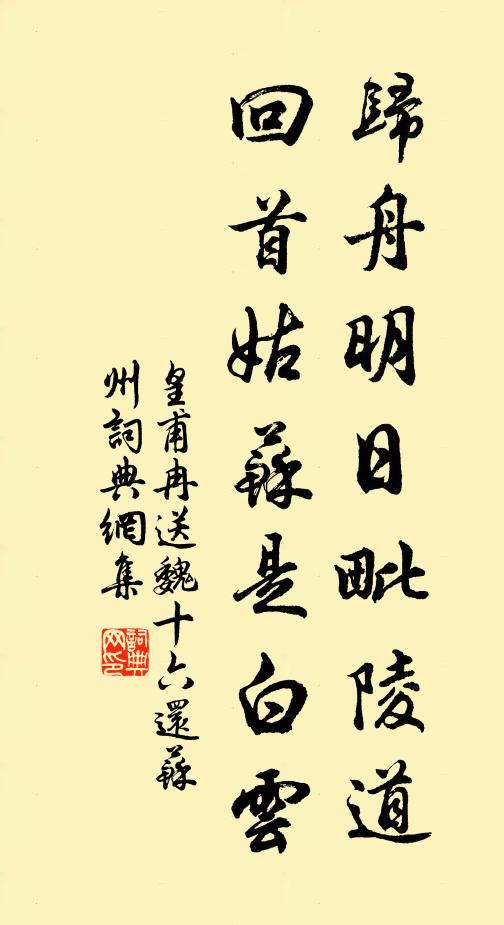 歸舟明日毗陵道
回首姑蘇是白雲
皇甫冉送魏十六還蘇
州詞典網集
詞典网印